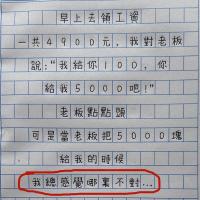 早上去領工資
一共4900元，我對老板
說："我给你100，你
給我5000吧！"
老板點點頭
可是當老板把5000塊
給我的時候
我總感覺哪裏不對...